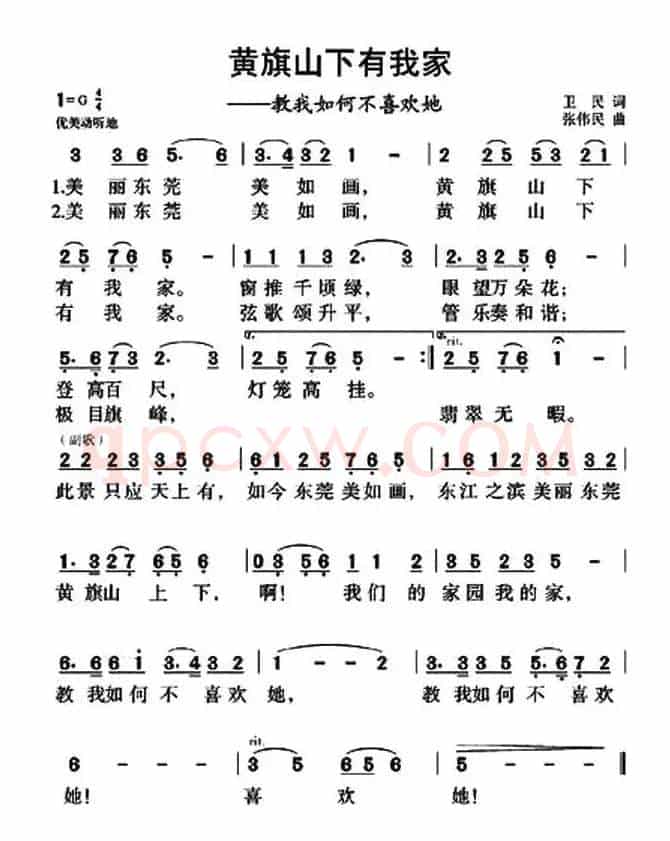 黄旗山下有我家
1=G 4/4 ——教我如何不喜欢她 卫 民 词
优美动听地 张伟民 曲
3 3 6 5· 6 | 3·4 3 2 2 - | 2 2 5 5 3 2 1 |
1.美 丽东莞 美如画, 黄旗山下
2.美 丽东莞 美如画, 黄旗山下
2 5 7 6 5 - | 1 1 1 3 2· 3 | 2·3 2 5 6 - |
有我家。 窗推千顷绿, 眼望万朵花;
有我家。 弦歌颂升平, 管乐奏和谐;
5·6 7 3 2· 3 | 2 5 7 6 5 - :| rit. 2 5 7 6 1 - |
登高百尺, 灯笼高挂。
极目旗峰, 翡翠无暇。
(副歌)
2 2 2 2 3 3 5 6 | 6 1 2 5 7 6 5 | 6 1 6 1 3 5 3 2 |
此景只应天上有, 如今东莞美如画, 东江之滨美丽东莞
1·3 2 7 6 5 6 | 0 3 5 6 1 1 2 | 3 5 2 3 5 - |
黄旗山上下, 啊! 我们的家园我的家,
6·6 6 6 i 3·4 3 2 | 1 - 2 3 | 3·3 3 3 5 6·5 6 2 |
教我如何不喜欢她, 教我如何不喜欢
6 - - - | rit. 3 5 6 5 6 | 5 - - - ‖
她! 喜欢她!
qpcxw.COM